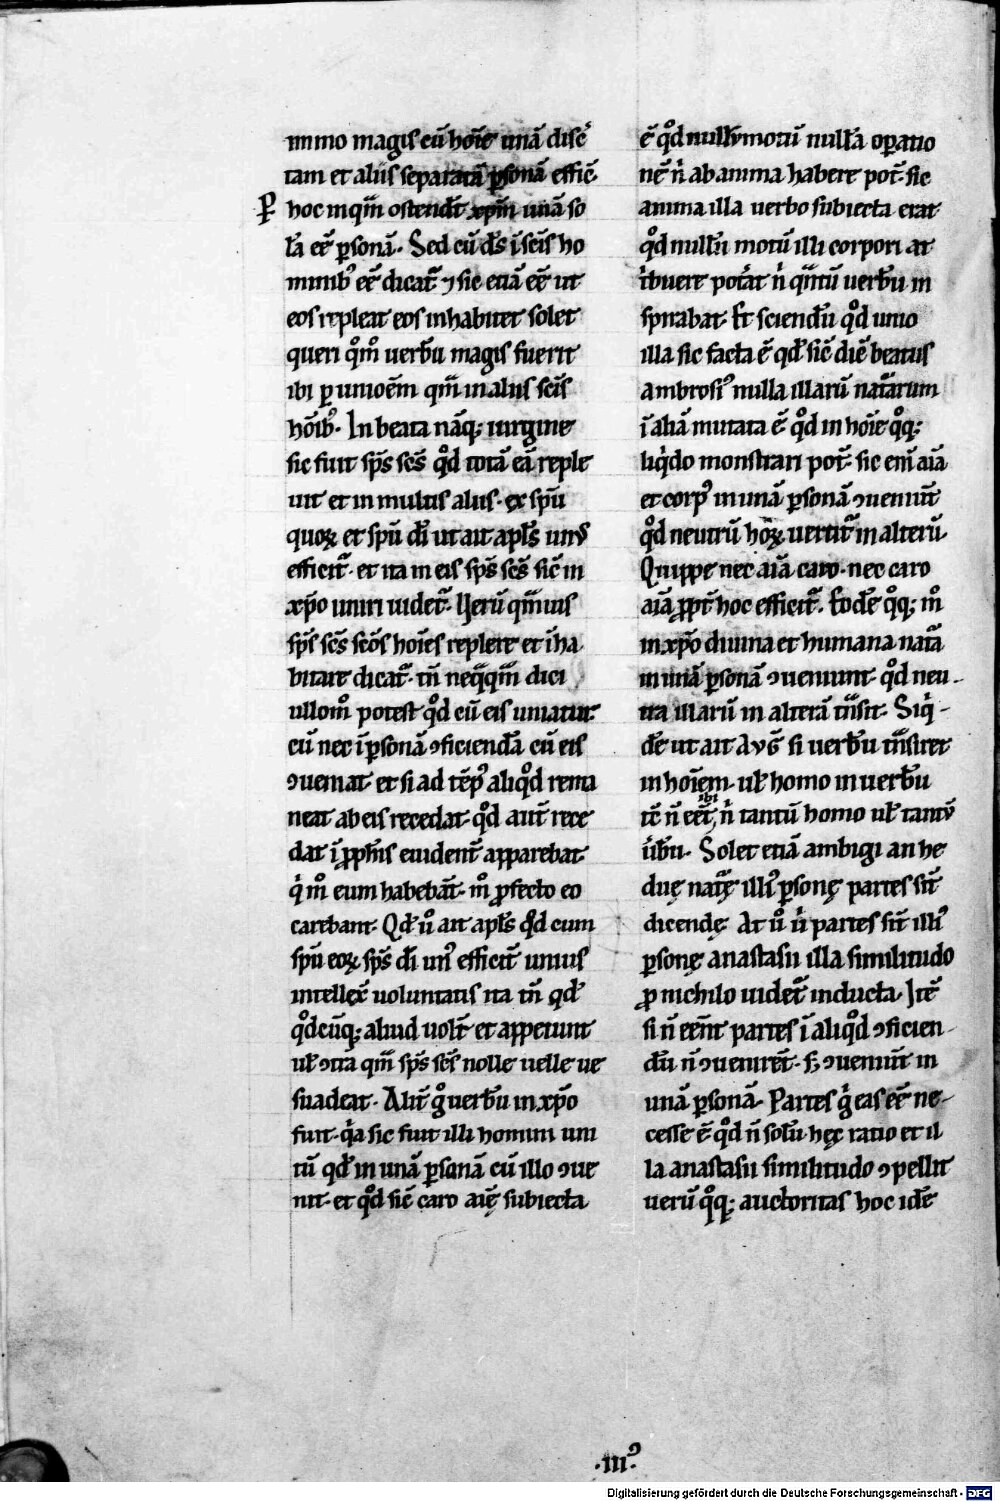 immo magis cū hoīe unā disc͛
tam et aliis separatā ꝑsonā effic̄.
ꝑ
hoc inqͣm ostendit xp̄m unā so
lā eē ꝑsonā. Sed cū dſ̄ ī sc̄is ho
minibꝰ eē dicat᷑ ⁊ sic etiā eē ut
eos repleat eos inhabitet solet
queri qͦmͦ uerbū magis fuerit
ibi ꝑ unioēm qͣm in aliis sc̄is
hōibꝰ. In beata nāq; uirgine
sic fuit sp̄s sc̄s qͦd totā eā reple
uit et in multis aliis. ex sp̄u
quoꝝ et sp̄u dī ut ait apl̄s unꝰ
efficit᷑. et ita in eis sp̄s sc̄s sic̄ in
xp̄o uniri uidet᷑. Uerū qͣmuis
sp̄s sc̄s sc̄os hoīes replere et īha
bitare dicat᷑. tn̄ neqͣqͣm dici
ullomͦ potest qͦd cū eis uniatur.
cū nec ī ꝑsonā ꝯficiendā cū eis
ꝯueniat. et si ad tēpꝰ aliqͦd rema
neat ab eis recedat. qͦd aut̄ rece
dat ī ꝓph̄is euident̄ apparebat.
qͥ mͦ eum habebāt. mͦ ꝓfecto eo
carebant. Qd̄ uͦ ait apl̄s qͦd cum
sp̄u eoꝝ sp̄s dī unꝰ efficit᷑ unius
intellec̄ uoluntatis ita tn̄ qd̄
qͦdcūq; aliud uolt̄ et appetunt
ul̄ ꝯtͣ qͣm sp̄s sc̄s nolle uelle ue
suadeat. Alit̄ gͦ uerbū in xp̄o
fuit. qͥa sic fuit illi homini uni
tū qd̄ in unā ꝑsonā cū illo ꝯue
nit. et qͦd sic̄ caro aīę subiecta
ē qͦd nullūmotū nullā oꝑatio
nē nͥ ab anima habere pot̄. sic
anima illa uerbo subiecta erat
qͦd nullū motū illi corpori at
tͥbuere potāt nͥ qͣntū uerbū in
spirabat. Et sciendū qͦd unio
illa sic facta ē qd̄ sic̄ diē beatus
ambrosiꝰ nulla illarū natͣarum
ī aliā mutata ē qͦd in hoīe qͦq;
liqͥdo monstrari pot̄. sic enī aīa
et corpꝰ in unā ꝑsonā ꝯueniūt
qͦd neutrū hoꝝ uertit᷑ in alterū.
Quippe nec aīa caro. nec caro
aīa ꝓpt̄ hoc efficit᷑. Eodē qͦq; mͦ
in xp̄o diuina et humana natͣa
in unā ꝑsonā ꝯueniunt. qͦd neu-
tra illarū in alterā tͣnsit. Siqͥ-
dē ut ait Auḡ si uerbū tͣnsiret
in hoīem. ul̄ homo in uerbū
ibi
tc̄ n̄ eēt, nͥ tantū homo ul̄ tantū
ūbū. Solet etiā ambigi an he
duę natͣę illiꝰ ꝑsonę partes sīt
dicendę. At uͦ nͥ partes sīt illiꝰ
ꝑsonę anastasii illa similitudo
ꝓ nichilo uidet᷑ inducta. Itē
si n̄ eēnt partes ī aliqͦd ꝯficien-
dū n̄ ꝯuenirēt. sꝫ ꝯueniūt in
unā ꝑsonā. Partes gͥ eas eē ne-
cesse ē qͦd n̄ solū hęc ratio et il
la anastasii similitudo ꝯpellit
uerū qͦq; auctoritas hoc idē
.iiiꝰ.
Digitalisierung gefördert durch die Deutsche Forschungsgemeinschaft - DFG